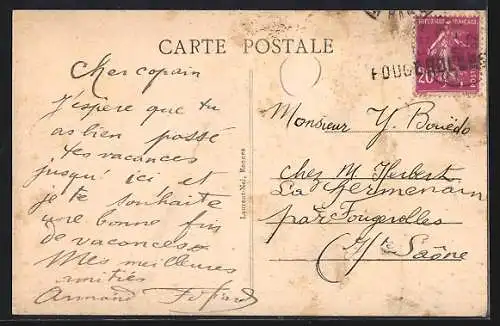 CARTE POSTALE
Cher copain
J'espère que tu
as bien passé
tes vacances
jusqu'ici et
je te souhaite
une bonne fin
de vacances
Mes meilleures
amitiés
Armand
Laurent-Nel, Rennes
FOUGEROLLES
20
POSTES
Monsieur Y. Bouëdo
chez M Herbert
La
par Fougerolles
Hte Saône